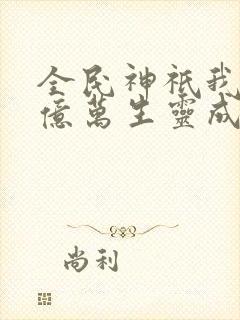 全民神祗我
億萬生靈成
尚利